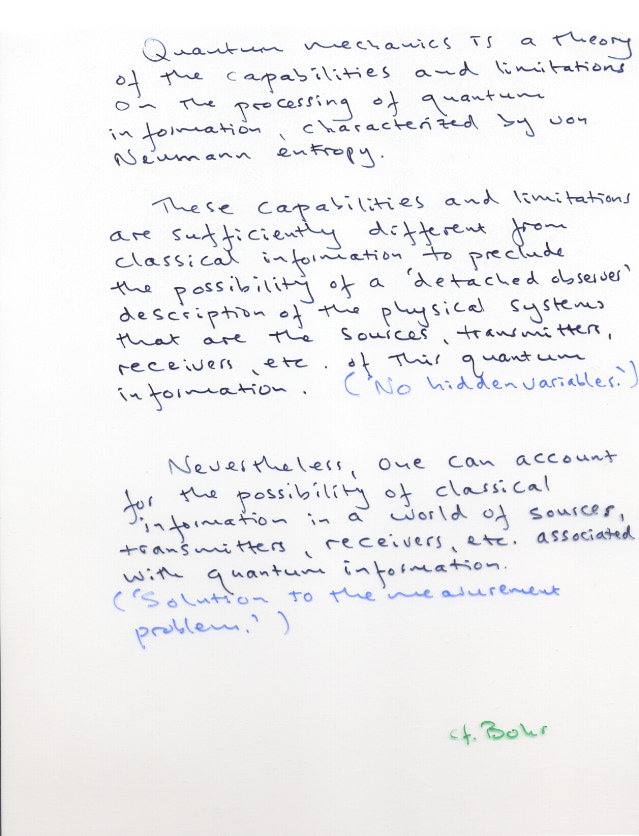 Quantum mechanics is a theory
of the capabilities and limitations
on the processing of quantum
information, characterized by von
Neumann entropy.
These capabilities and limitations
are sufficiently different from
classical information to preclude
the possibility of a 'detached observer'
description of the physical systems
that are the sources, transmitters,
receivers, etc. of this quantum
information. ('No hidden variables.')
Nevertheless, one can account
for the possibility of classical
information in a world of sources,
transmitters, receivers, etc. associated
with quantum information.
('Solution to the measurement
problem.')
cf. Bohr